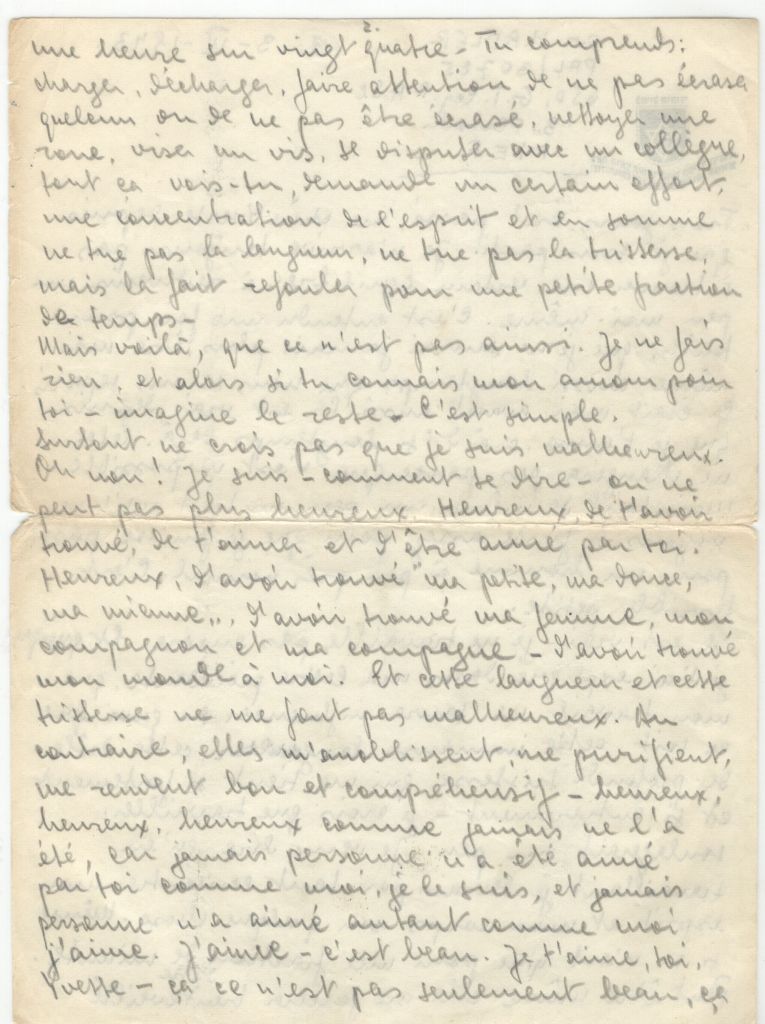 2.
une heure sur vingt quatre – Tu comprends:
charger, décharger, faire attention de ne pas écraser
quelcun ou de ne pas être écrasé, nettoyer une
roue, viser un vis, se disputer avec un collègue,
tout ça vois-tu, demande un certain effort,
une concentration de l'esprit et en somme
ne tue pas la langueur, ne tue pas la tristesse,
mais la fait refouler pour une petite fraction
de temps –
Mais voilà, que ce n'est pas aussi. Je ne fais
rien, et alors si tu connais mon amour pour
toi – imagine le reste – C'est simple.
Surtout ne crois pas que je suis malheureux.
Oh non! Je suis – comment se dire – on ne
peut pas plus heureux. Heureux, de t'avoir
trouvé, de t'aimer et d'être aimé par toi.
Heureux, d'avoir trouvé "ma petite, ma douce,
ma mienne,,, d'avoir trouvé ma femme, mon
compagnon et ma compagne – d'avoir trouvé
mon monde à moi. Et cette langueur et cette
tristesse ne me font pas malheureux. Au
contraire, elles m'anoblissent, me purifient,
me rendent bon et compréhensif – heureux,
heureux, heureux comme jamais ne l'a
été, car jamais personne n'a été aimé
par toi comme moi, je le suis, et jamais
personne n'a aimé autant comme moi
j'aime. J'aime – c'est beau. Je t'aime, toi,
Yvette – ça ce n'est pas seulement beau, ça